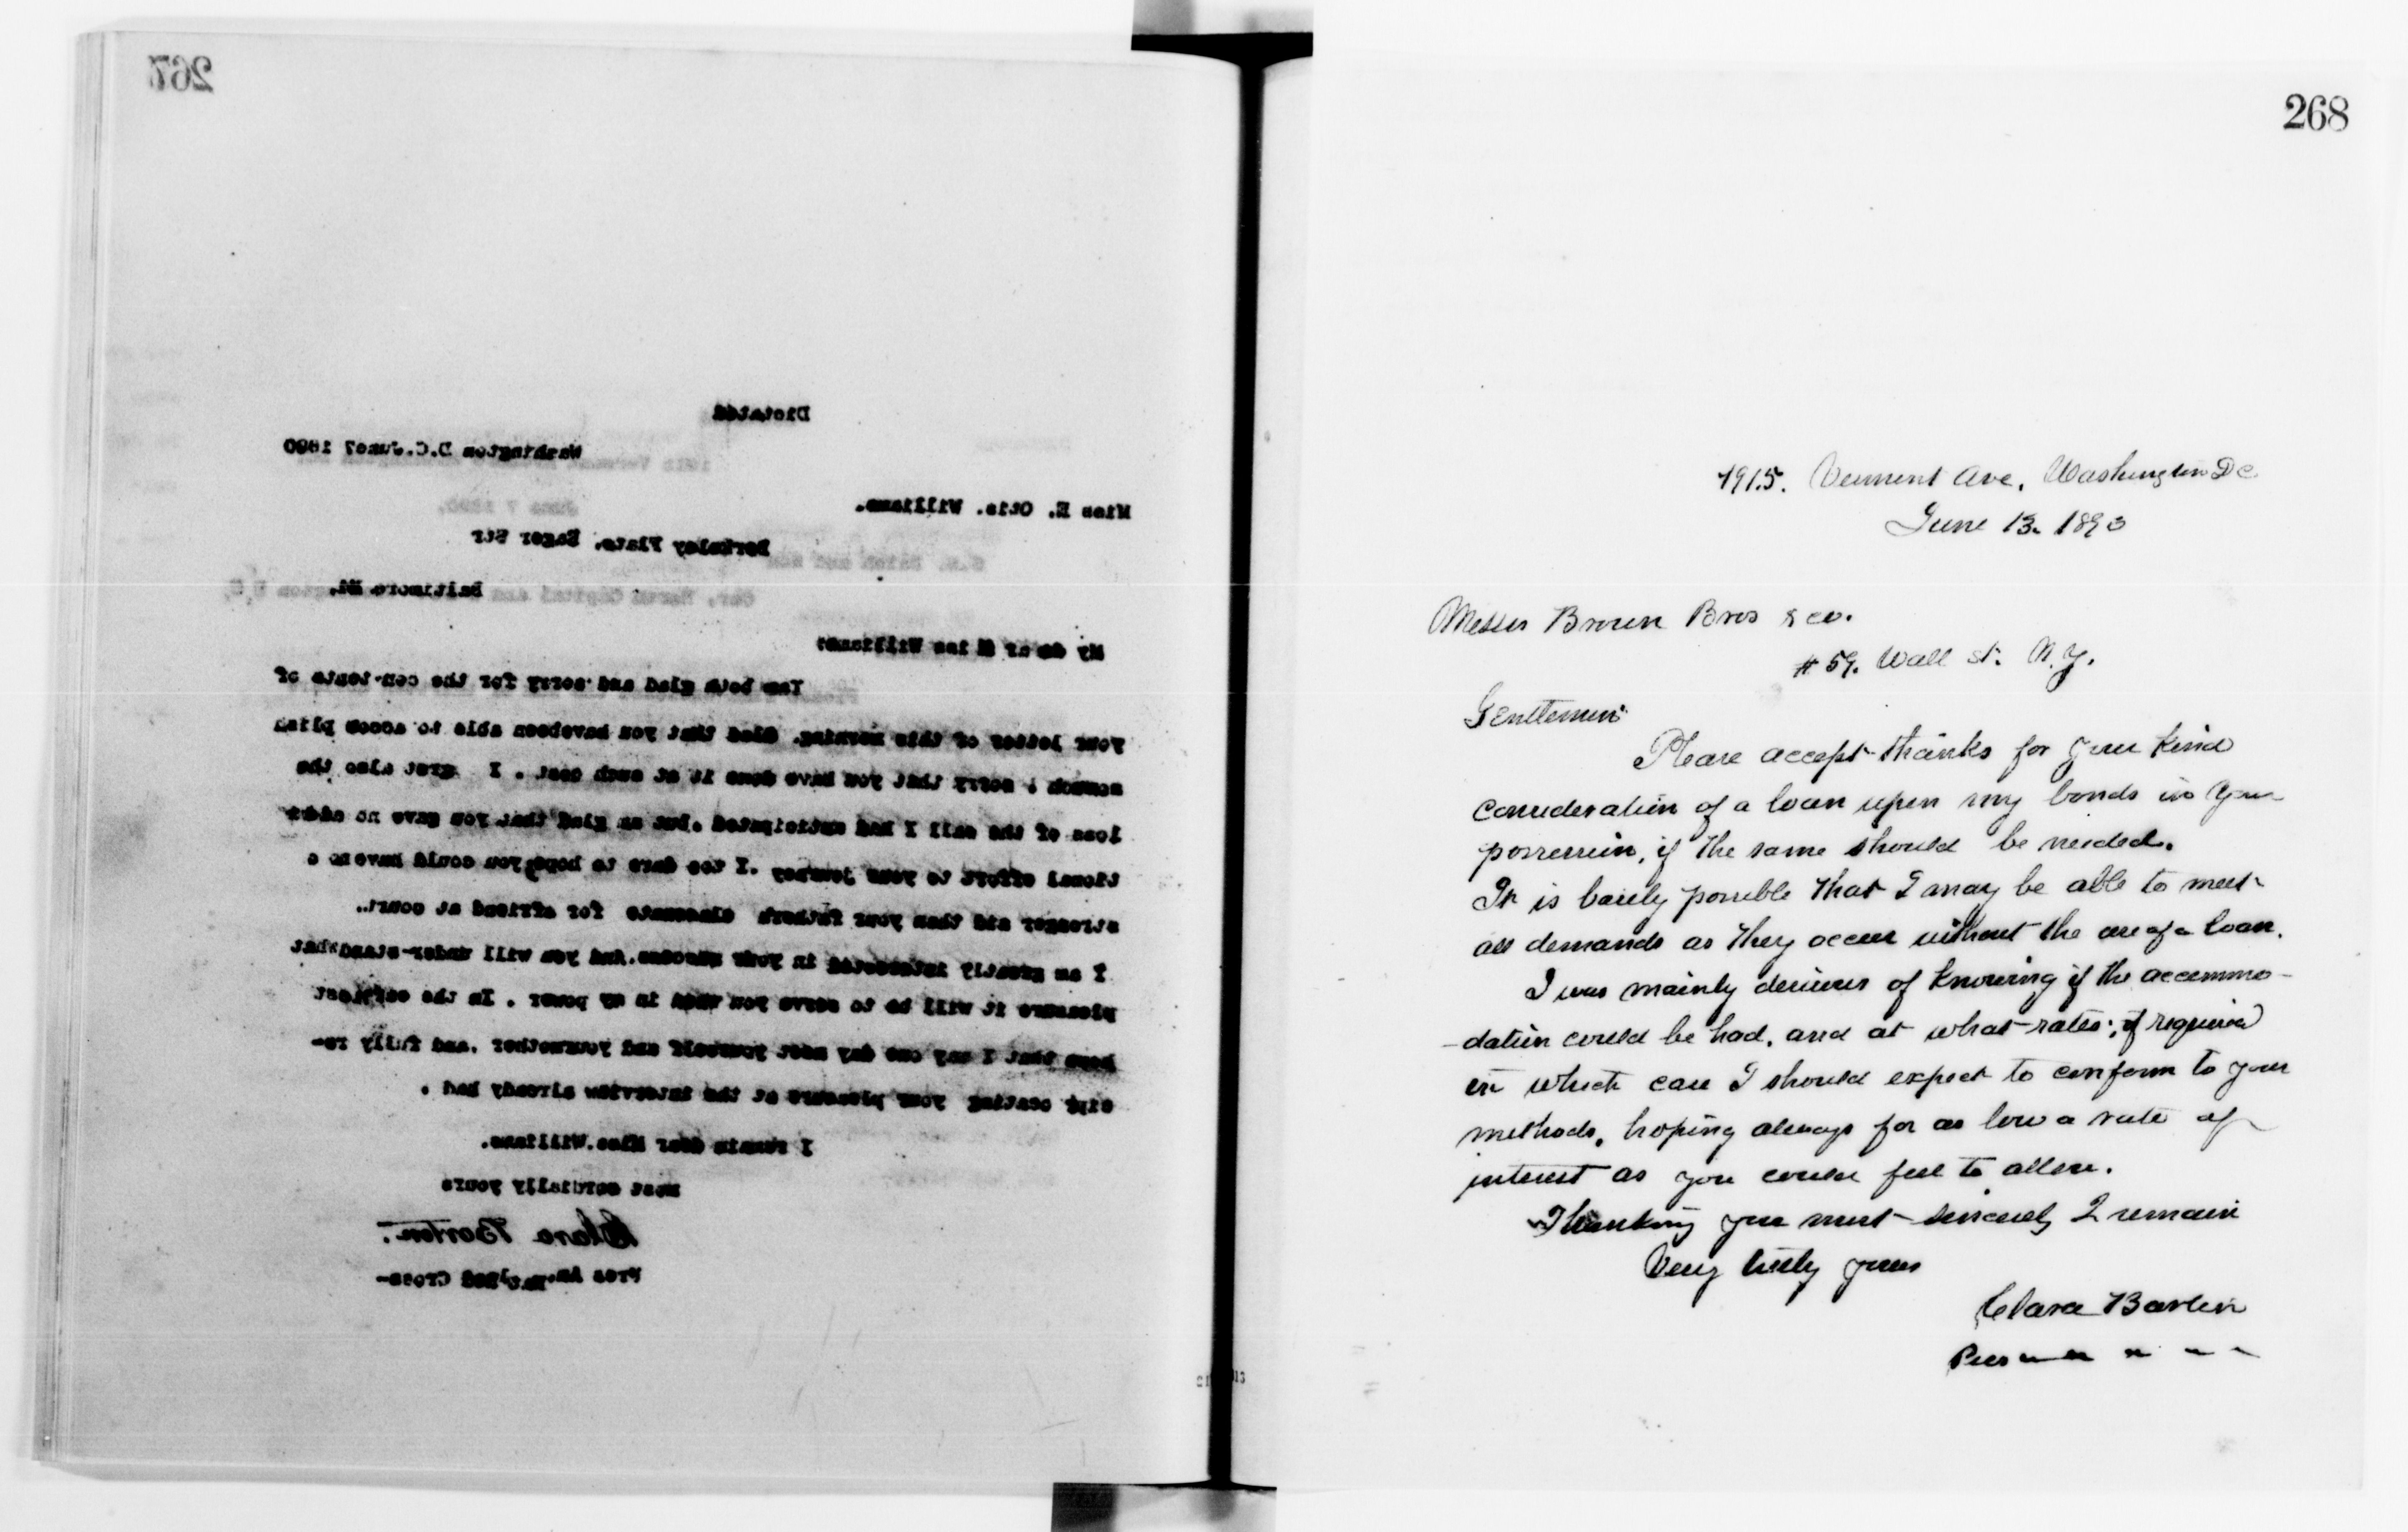 267
Dictated
Washington D.C.June7 1890
Miss E. Otis. Williams.
Berkeley Flats. Eager Str
Baltimore Md.
My de ar M iss Williams:
Iam both glad and sorry for the con-tents of
your letter of this morning. Glad that you havebeen able to accom plish
somuch ; sorry that you have done it at such cost . I gret also the
loss of the call I had anticipated .but am glad that you gave no addi-
tional effort to your journey .I too dare to hope you could have no
stronger aid than your fathers classmate for afriend at court.
I am greatly interested in your success.And you will under-stand what
pleasure it will be to serve you when in my power . In the earliest
hope that I may one day meet yourself and yourmother .and fully re-
cip ocating your pleasure at the interview already had .
I remain dear Miss.Williams.
most cordially yours
Clara Barton.
Pres Am. Nat Red Cross-
268
1915. Vermont Ave, Washington D C
June 13. 1890
Messrs Brown Bros & co.
# 59. Wall st. N.Y.
Gentlemen:
Please accept thanks for your kind
consideration of a loan upon my bonds in your
possession, if the same should be needed.
It is barely possible that I may be able to meet
all demands as they occur without the use of a loan.
I was mainly desirous of knowing if the accommo-
-dation could be had, and at what rates; if required
in which case I should expect to conform to your
methods, hoping always for as low a rate of
interest as you could feel to allow.
Thanking you most sincerely I remain
Very truly yours
Clara Barton
Pres